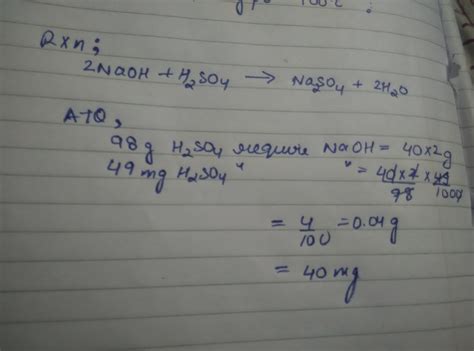 100%
Rxn;
2NaOH + H₂SO₄ → Na₂SO₄ + 2H₂O
ATQ,
98g H₂SO₄ require NaOH = 40×2g
49 mg H₂SO₄ " " = 40×2 × 49 / 98 1000
= 4/100 = 0.04g
= 40 mg